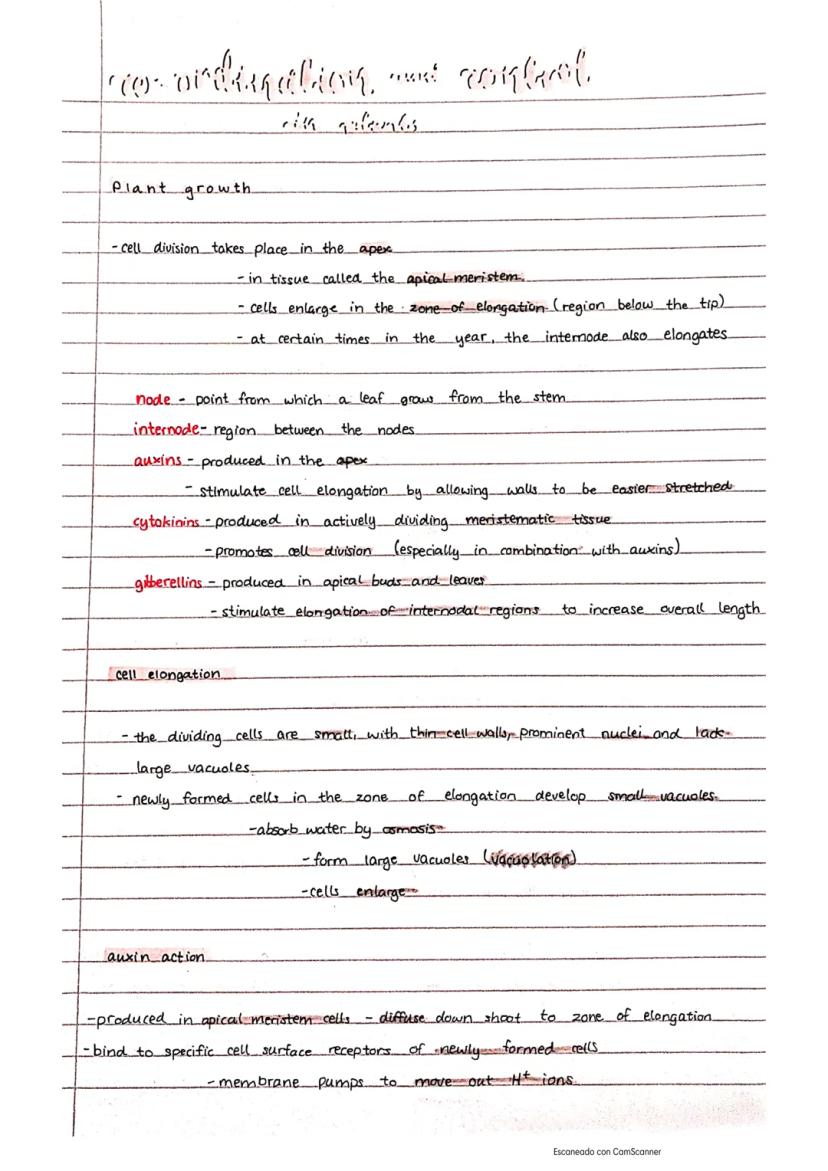 co-ordination and control
in plants
Plant growth
- cell division takes place in the apex
- in tissue called the apical meristem.
- cells enlarge in the zone of elongation (region below the tip)
- at certain times in the year, the internode also elongates
node - point from which a leaf grows from the stem
internode - region between the nodes
auxins - produced in the apex
- stimulate cell elongation by allowing walls to be easier stretched
cytokinins - produced in actively dividing meristematic tissue
- promotes cell division (especially in combination with auxins)
gibberellins - produced in apical buds and leaves
- stimulate elongation of internodal regions to increase overall length
cell elongation
- the dividing cells are small, with thin cell walls, prominent nuclei and lack
large vacuoles
- newly formed cells in the zone of elongation develop small vacuoles
- absorb water by osmosis
- form large vacuoles (vacuolation)
- cells enlarge
auxin action
- produced in apical meristem cells - diffuse down shoot to zone of elongation
- bind to specific cell surface receptors of newly formed cells
- membrane pumps to move out H+ ions.
Escaneado con CamScanner